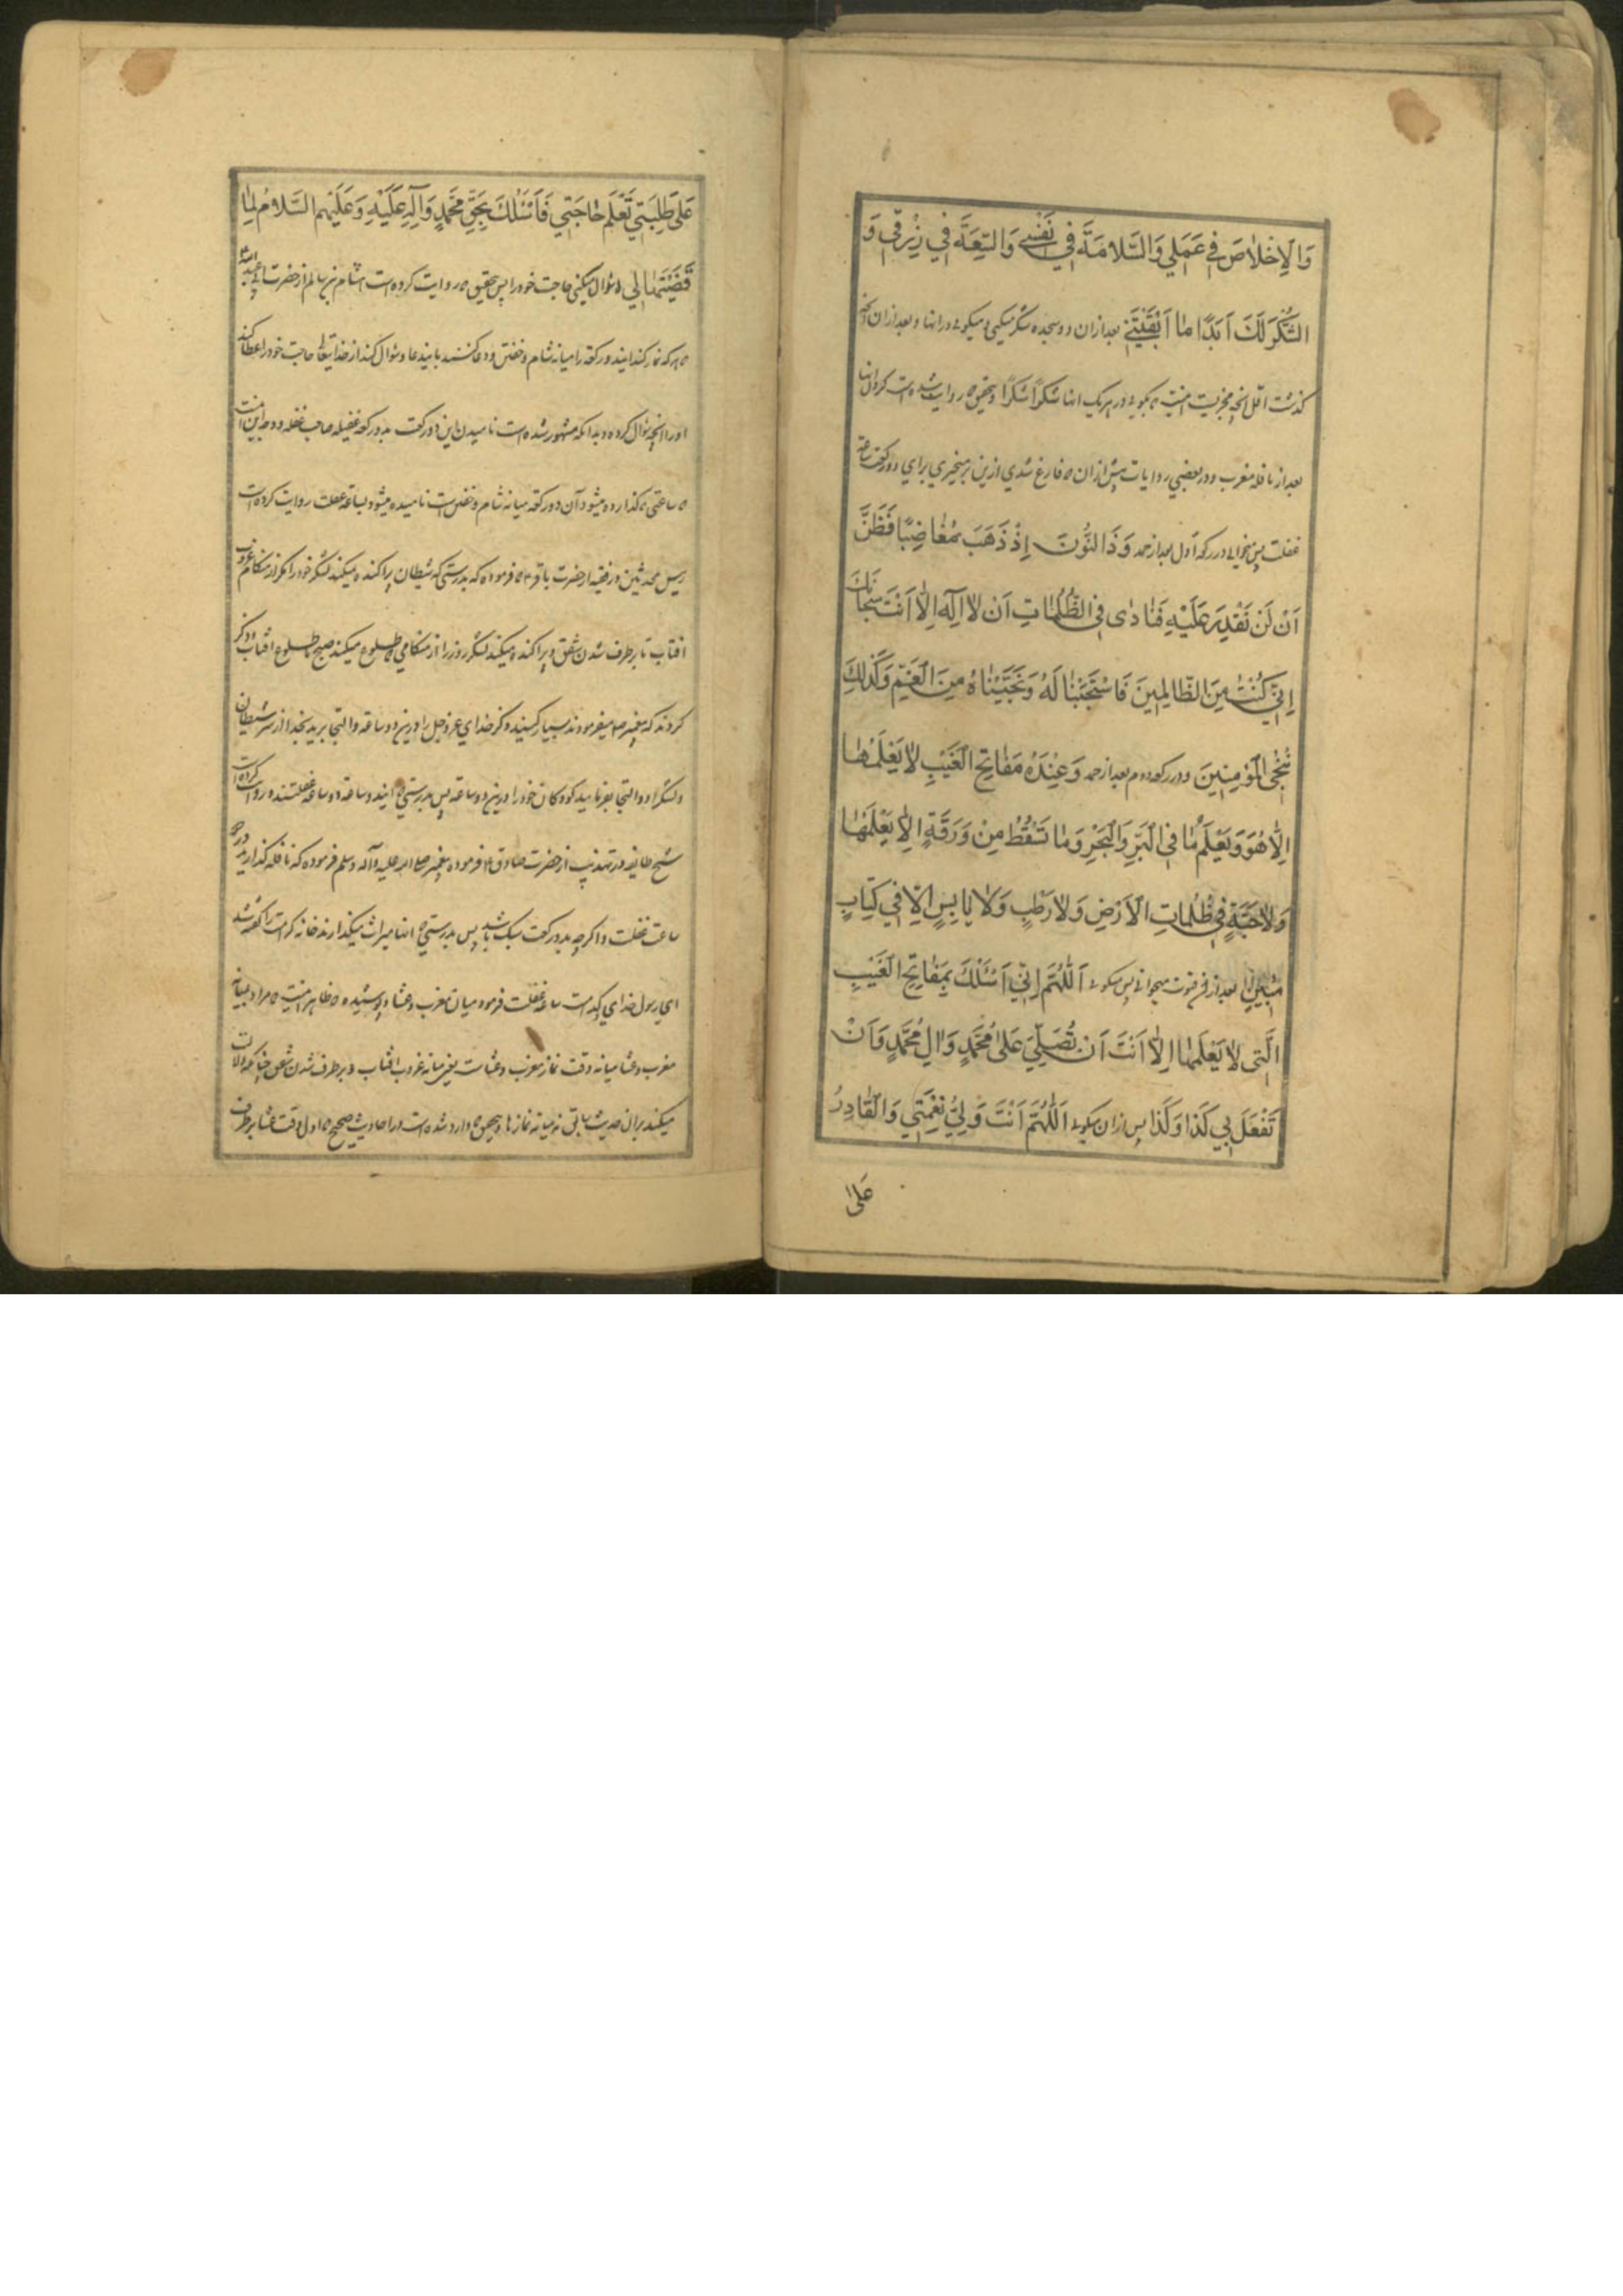 وَالْاِخْلاٰصَ فِي عَمَلِي وَالسَّلامَةَ فِي نَفْسِي وَالسَّعَةَ فِي رِزْقِي وَ
الشُّكْرَ لَكَ اَبَدًا مٰا اَبْقَيْتَنِي بعد ازان دو سجده شکر میکنی و میکوئی در انها و بعد ازان آنچه
کذشت اقل انچه مجزیست اینست که بکوئی در هریک انها شُكْرًا شُكْرًا و بتحقیق که روایت شده است کردن انها
بعد از نافله مغرب و در بعضی روایات پیش ازان و فارغ شدی ازین برمیخیزی برای دو رکعت ساعة
غفلت پس میخوانی در رکعة اول بعد از حمد وَذَا النُّونِ اِذْ ذَهَبَ مُغٰاضِبًا فَظَنَّ
اَنْ لَنْ نَقْدِرَ عَلَيْهِ فَنٰادٰى فِي الظُّلُمٰاتِ اَنْ لاٰ اِلٰهَ اِلاّٰ اَنْتَ سُبْحٰانَكَ
اِنِّي كُنْتُ مِنَ الظّٰالِمِينَ فَاسْتَجَبْنٰا لَهُ وَنَجَّيْنٰاهُ مِنَ الْغَمِّ وَكَذٰلِكَ
نُنْجِي الْمُؤْمِنِينَ و در رکعة دوم بعد از حمد وَعِنْدَهُ مَفٰاتِحُ الْغَيْبِ لاٰ يَعْلَمُهٰا
اِلاّٰ هُوَ وَيَعْلَمُ مٰا فِي الْبَرِّ وَالْبَحْرِ وَمٰا تَسْقُطُ مِنْ وَرَقَةٍ اِلاّٰ يَعْلَمُهٰا
وَلاٰ حَبَّةٍ فِي ظُلُمٰاتِ الْاَرْضِ وَلاٰ رَطْبٍ وَلاٰ يٰابِسٍ اِلاّٰ فِي كِتٰابٍ
مُبِينٍ بعد ازان قنوت میخوانی پس میکوئی اَللّٰهُمَّ اِنِّي اَسْئَلُكَ بِمَفٰاتِحِ الْغَيْبِ
الَّتِي لاٰ يَعْلَمُهٰا اِلاّٰ اَنْتَ اَنْ تُصَلِّيَ عَلىٰ مُحَمَّدٍ وَاٰلِ مُحَمَّدٍ وَاَنْ
تَفْعَلَ بِي كَذٰا وَكَذٰا پس ازان میکوئی اَللّٰهُمَّ اَنْتَ وَلِيُّ نِعْمَتِي وَالْقٰادِرُ
عَلىٰ
عَلىٰ طَلِبَتِي تَعْلَمُ حٰاجَتِي فَاَسْئَلُكَ بِحَقِّ مُحَمَّدٍ وَآلِهِ عَلَيْهِ وَعَلَيْهِمُ السَّلامُ لَمّٰا
قَضَيْتَهٰا لِي و سؤال میکنی حاجت خود را پس بتحقیق که روایت کرده است هشام بن سالم از حضرت ابی عبد الله
که هرکه نماز کند ایند ورکعة را میانه شام و خفتن و دعا کند باین دعا و سؤال کند از خدایتعالی حاجت خود را عطا کند
او را انچه سؤال کرده و بدانکه مشهور شده است نامیدن این دو رکعت بدو رکعة غفیله صاحب غفله و وجه این اینست
که ساعتی که کذارده میشود آن دو رکعة میانه شام و خفتن است نامیده میشود بساعة غفلت روایت کرده است
رییس محدثین در فقیه از حضرت باقر ع که فرموده که بدرستی که شیطان پراکنده میکند لشکر خود را مکر از هنکام غروب
افتاب تا برطرف شدن شفق و پراکنده میکند لشکر روز را از هنکامی که طلوع میکند صبح تا طلوع افتاب و ذکر
کردند که پیغمبر ص میفرمودند بسیار کنید ذکر خدای عز و جل را درین دو ساعة و التجا برید بخدا از شر شیطان
و لشکر او و التجا بفرمایید کودکان خود را درین دو ساعة پس بدرستی که ایندو ساعة دو ساعة غفلتند و روایت کرده است
شیخ طایفه در تهذیب از حضرت صادق ع که فرموده پیغمبر صلی الله علیه و آله و سلم فرموده که نافله کذارید در
ساعت غفلت و اکرچه بدو رکعت سبک باشد پس بدرستی که انها میراث میکذارند خانه کرامت را کفته شد
ای رسول خدای کدامست ساعة غفلت فرمود میان مغرب و عشا و پوشیده که ظاهر اینست که مراد بمیانه
مغرب و عشا میانه وقت نماز مغرب و عشاست یعنی میانه غروب افتاب و برطرف شدن شفق چنانکه دلالت
میکند بران حدیث سابق نه میانه نمازها و بتحقیق که وارد شده است در احادیث صحیح که اول وقت عشا برطرف